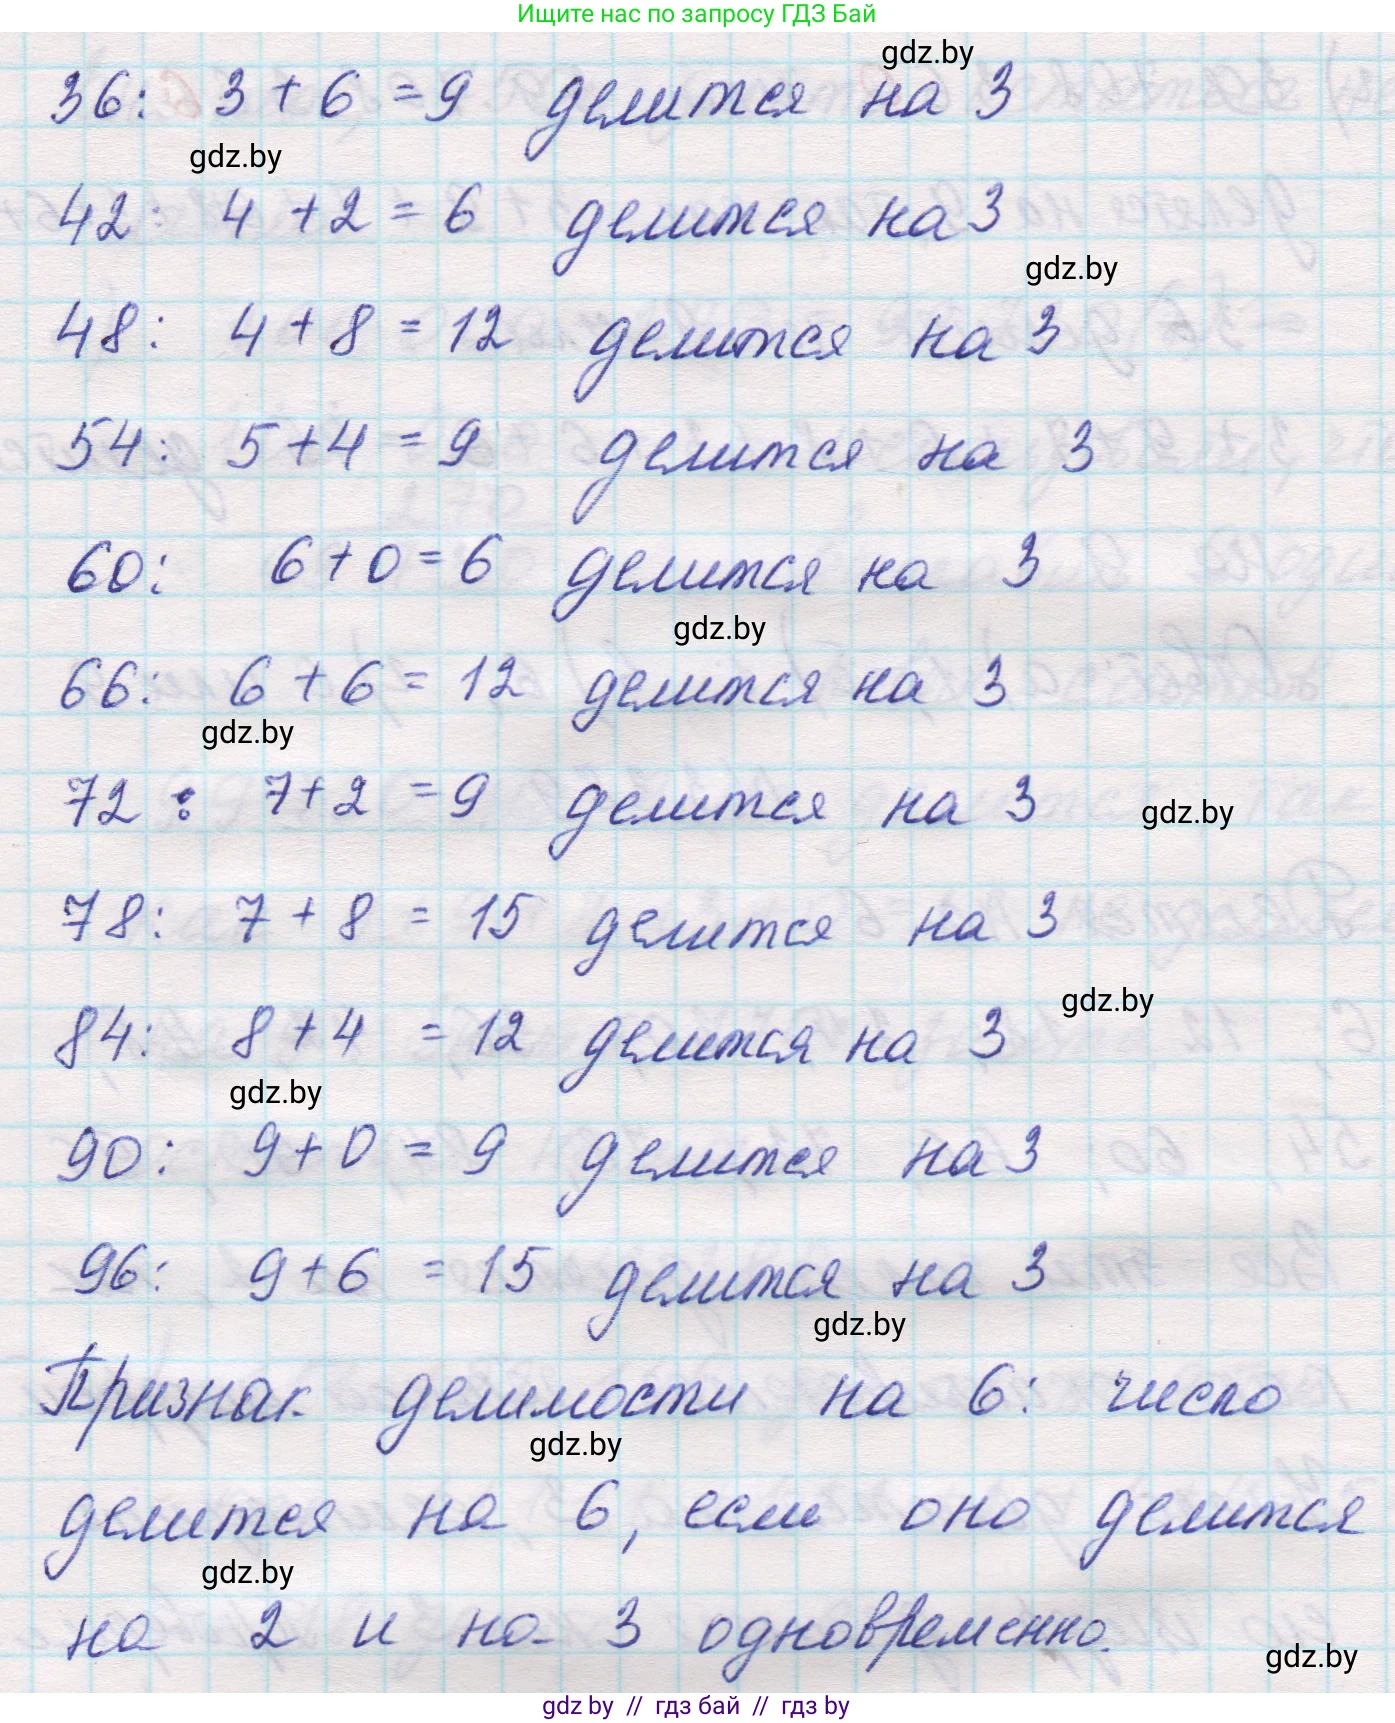 Ищите нас по запросу ГДЗ Бай
gdz.by
36: 3 + 6 = 9 делится на 3
gdz.by
42: 4 + 2 = 6 делится на 3
gdz.by
48: 4 + 8 = 12 делится на 3
54: 5 + 4 = 9 делится на 3
60: 6 + 0 = 6 делится на 3
gdz.by
66: 6 + 6 = 12 делится на 3
gdz.by
72 : 7 + 2 = 9 делится на 3
gdz.by
78: 7 + 8 = 15 делится на 3
gdz.by
84: 8 + 4 = 12 делится на 3
gdz.by
90: 9 + 0 = 9 делится на 3
96: 9 + 6 = 15 делится на 3
gdz.by
Признак делимости на 6: число
gdz.by
делится на 6, если оно делится
gdz.by
на 2 и на 3 одновременно.
gdz.by
gdz by // гдз бай // гдз by